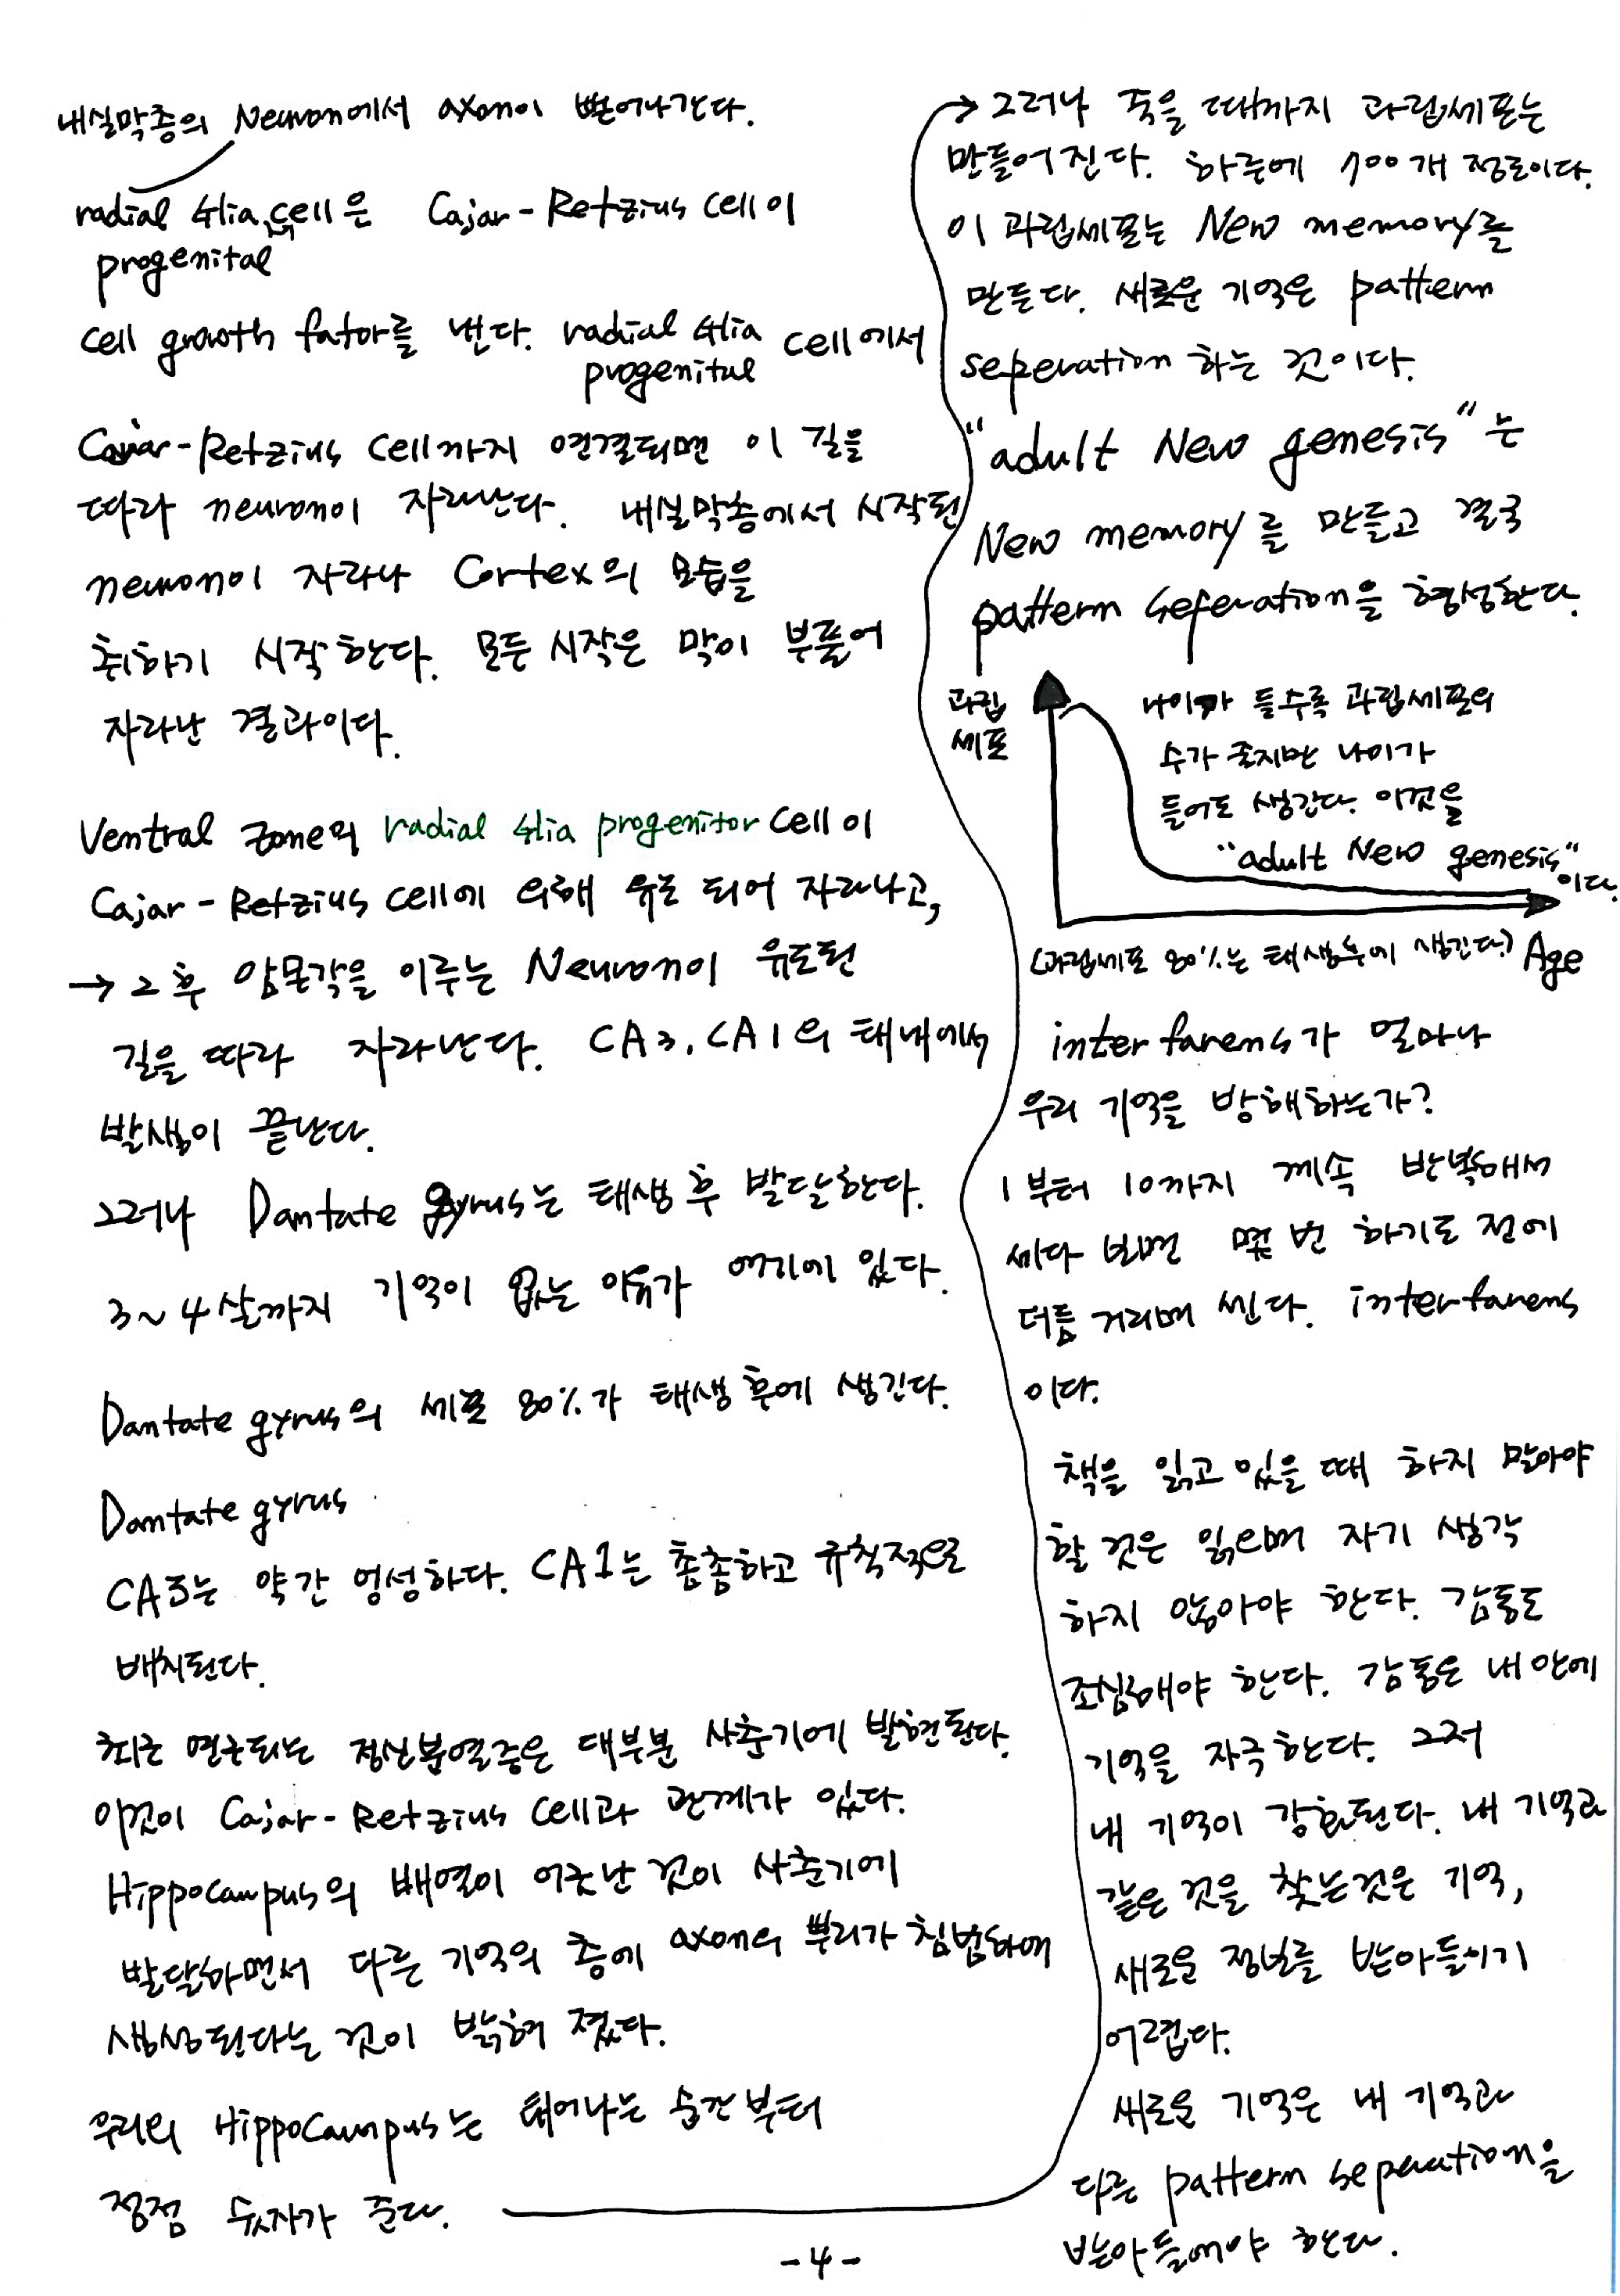 내실막층의 Neuron에서 axon이 뻗어나간다.
radial Glia cell은 Cajar-Retzius cell이
progenital
cell growth fator를 낸다. radial Glia cell에서
progenital
Cajar-Retzius cell까지 연결되면 이 길을
따라 neuron이 자라난다. 내실막층에서 시작된
neuron이 자라나 Cortex의 모습을
취하기 시작한다. 모든 시작은 막이 부풀어
자라난 결과이다.
Ventral Zone의 radial Glia progenitor cell이
Cajar-Retzius cell에 의해 유도 되어 자라나고,
→ 그 후 암몬각을 이루는 Neuron이 유도된
길을 따라 자라난다. CA3, CA1의 태내에서
발생이 끝난다.
그러나 Dantate gyrus는 태생 후 발달한다.
3~4살까지 기억이 없는 이유가 여기에 있다.
Dantate gyrus의 세포 80%가 태생 후에 생긴다.
Dantate gyrus
CA3는 약간 엉성하다. CA1는 촘촘하고 규칙적으로
배치된다.
최근 연구되는 정신분열증은 대부분 사춘기에 발현된다.
이것이 Cajar-Retzius cell과 관계가 있다.
Hippocampus의 배열이 어긋난 것이 사춘기에
발달하면서 다른 기억의 층에 axon의 뿌리가 침범하여
생성된다는 것이 밝혀 졌다.
우리의 Hippocampus는 태어나는 순간부터
점점 숫자가 준다.
→ 그러나 죽을 때까지 과립세포는
만들어진다. 하루에 700개 정도이다.
이 과립세포는 New memory를
만든다. 새로운 기억은 pattern
seperation 하는 것이다.
"adult New genesis"는
New memory를 만들고 결국
pattern seperation을 형성한다.
과립
세포
나이가 들수록 과립세포의
수가 줄지만 나이가
들어도 생긴다. 이것을
"adult New genesis"
이다.
(과립세포 80%는 태생후에 생긴다) Age
interfarens가 얼마나
우리 기억을 방해하는가?
1부터 10까지 계속 반복해서
세다 보면 몇 번 하기도 전에
더듬 거리며 센다. interfarens
이다.
책을 읽고 있을 때 하지 말아야
할 것은 읽으며 자기 생각
하지 않아야 한다. 감동도
조심해야 한다. 감동은 내 안에
기억을 자극한다. 그저
내 기억이 강화된다. 내 기억과
같은 것을 찾는것은 기억,
새로운 정보를 받아들이기
어렵다.
새로운 기억은 내 기억과
다른 pattern seperation을
받아들여야 한다.
-4-